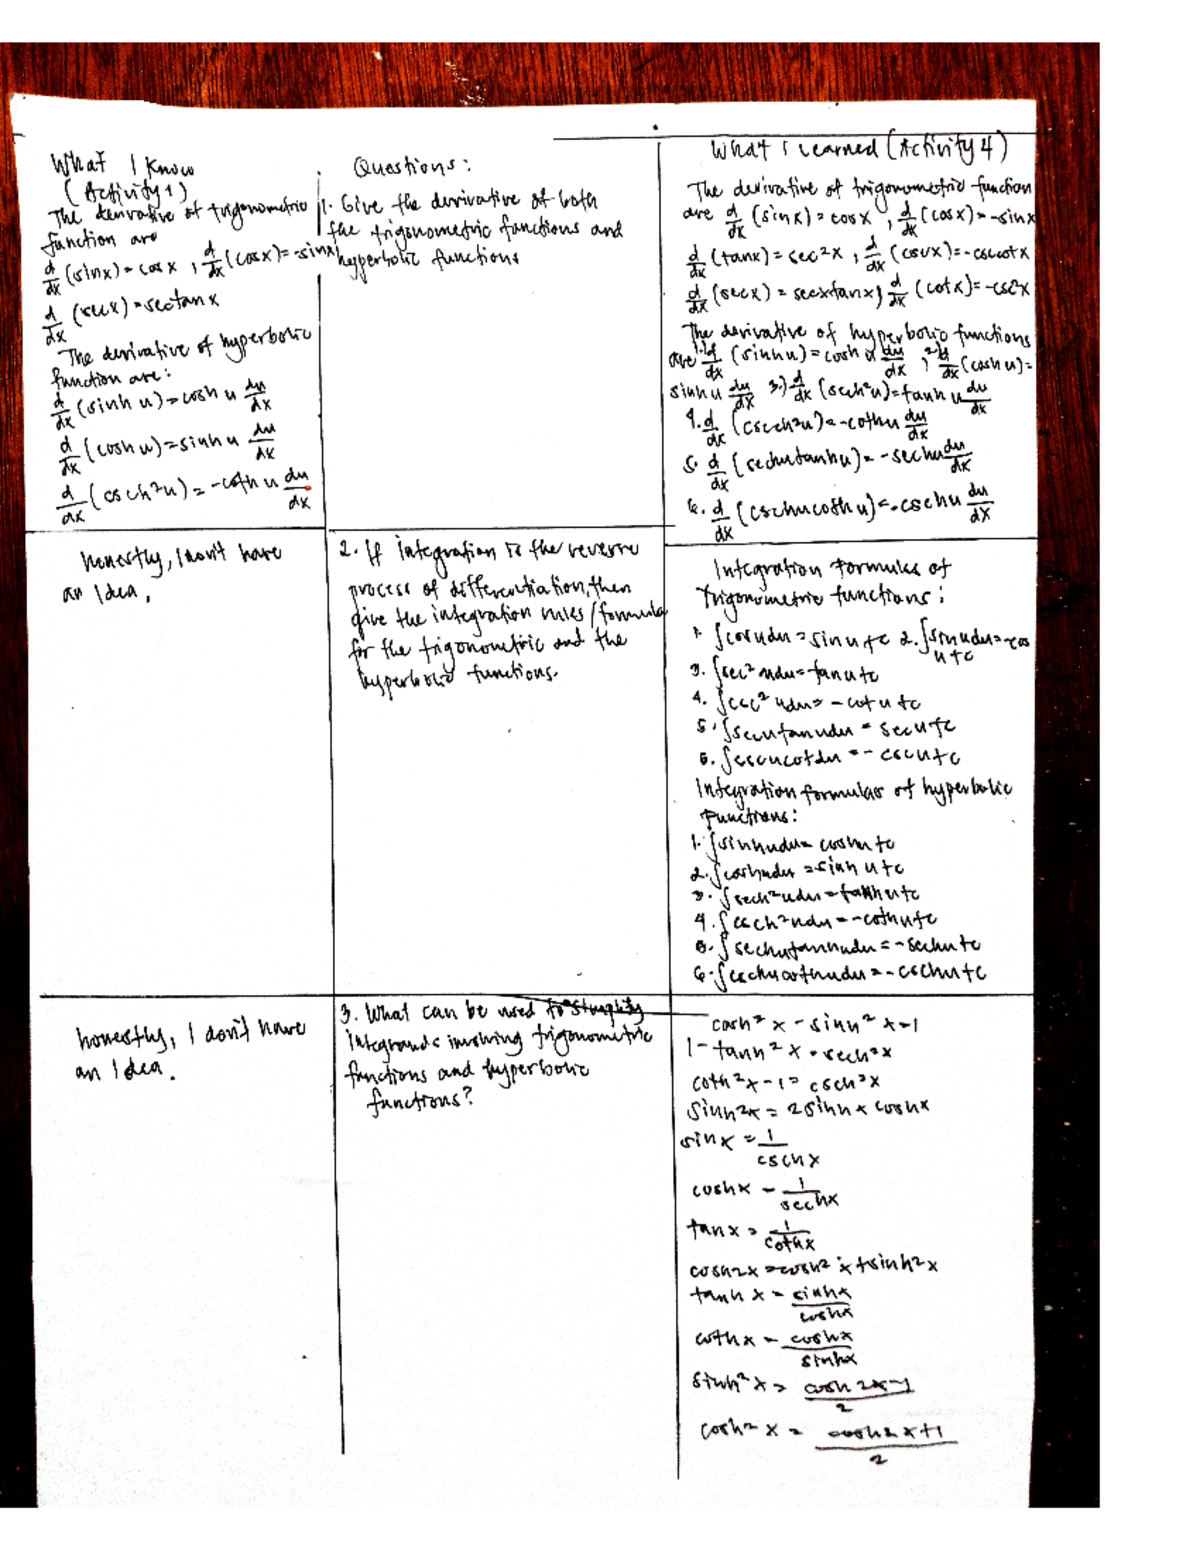 What I Know
(Activity 1)
The derivative of trigonometric
function are
d/dx (sinx) = cosx , d/dx (cosx) = -sinx
d/dx (secx) = sectanx
The derivative of hyperbolic
function are:
d/dx (sinh u) = cosh u du/dx
d/dx (cosh u) = sinh u du/dx
d/dx (csch²u) = -coth u du/dx
Questions:
1. Give the derivative of both
the trigonometric functions and
hyperbolic functions
What I Learned (Activity 4)
The derivative of trigonometric function
are d/dx (sinx) = cosx , d/dx (cosx) = -sinx
d/dx (tanx) = sec²x , d/dx (cscx) = -csccotx
d/dx (secx) = secxtanx , d/dx (cotx) = -csc²x
The derivative of hyperbolic functions
are 1.) d/dx (sinhu) = cosh u du/dx , 2.) d/dx (cosh u) =
sinh u du/dx 3.) d/dx (sech²u) = tanh u du/dx
4. d/dx (csch²u) = -cothu du/dx
5. d/dx (sechutanhu) = -sechu du/dx
6. d/dx (cschucothu) = -cschu du/dx
honestly, I don't have
an Idea.
2. If integration is the reverse
process of differentiation, then
give the integration rules/formula
for the trigonometric and the
hyperbolic functions.
Integration formulas of
Trigonometric functions:
1. ∫cosudu = sinu+c 2. ∫sinudu = -cos
u+c
3. ∫sec²udu = tanu+c
4. ∫csc²udu = -cotu+c
5. ∫secutanudu = secu+c
6. ∫cscucotdu = -cscu+c
Integration formulas of hyperbolic
Functions:
1. ∫sinhudu = coshu+c
2. ∫coshudu = sinhu+c
3. ∫sech²udu = tanhu+c
4. ∫csch²udu = -cothu+c
5. ∫sechutanhudu = -sechu+c
6. ∫cschucothudu = -cschu+c
honestly, I don't have
an Idea.
3. What can be used to simplify
integrands involving trigonometric
functions and hyperbolic
functions?
cosh²x - sinh²x = 1
1 - tanh²x = sech²x
coth²x - 1 = csch²x
sinh2x = 2sinhx coshx
sinx = 1/cschx
coshx = 1/sechx
tanx = 1/cothx
cosh2x = cosh²x + sinh²x
tanhx = sinhx/coshx
cothx = coshx/sinhx
sinh²x = cosh2x-1/2
cosh²x = cosh2x+1/2